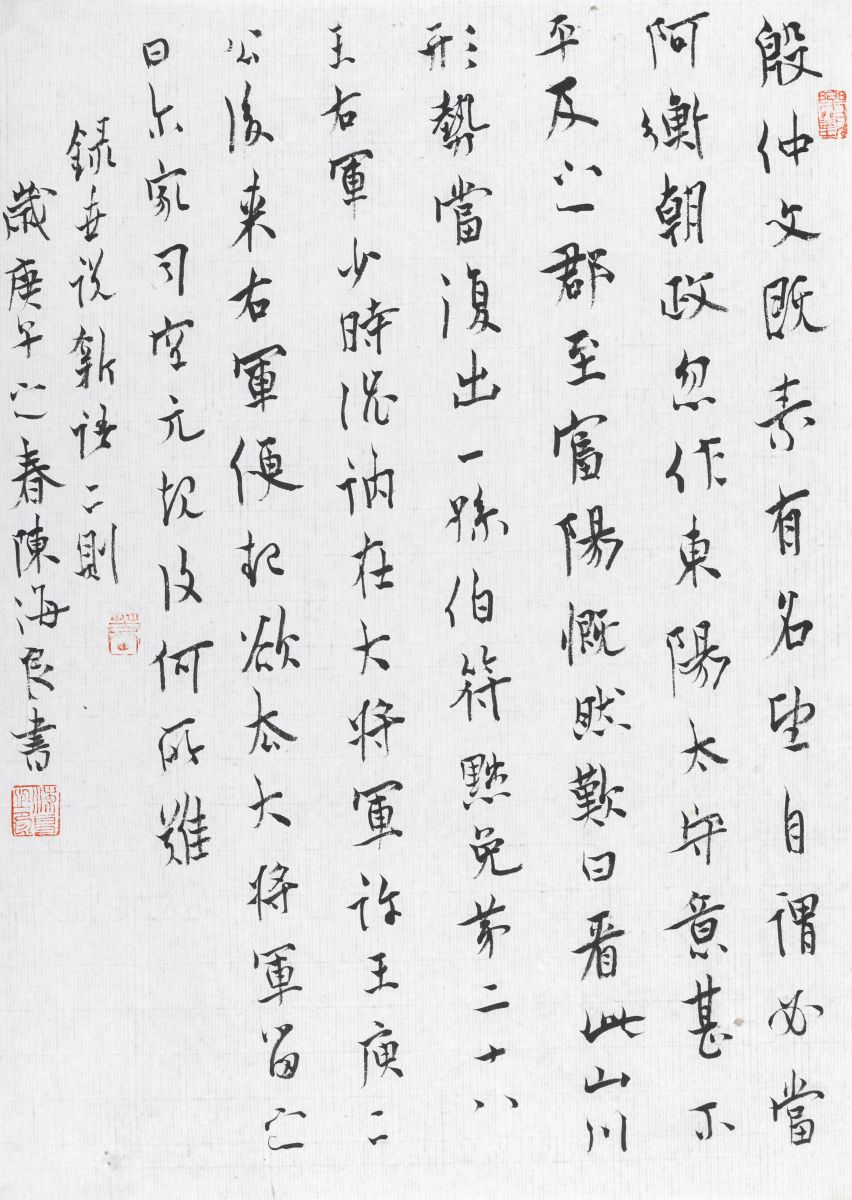 殷仲文既素有名望自謂必當
阿衡朝政忽作東陽太守意甚不
平及之郡至富陽慨然歎曰看此山川
形勢當復出一孫伯符黜免第二十八
王右軍少時澁訥在大将軍許王庾二
公後来右軍便起欲去大将軍留之
曰尔家司空元規復何所難
録世说新語二則
歲庚午之春陳海良書